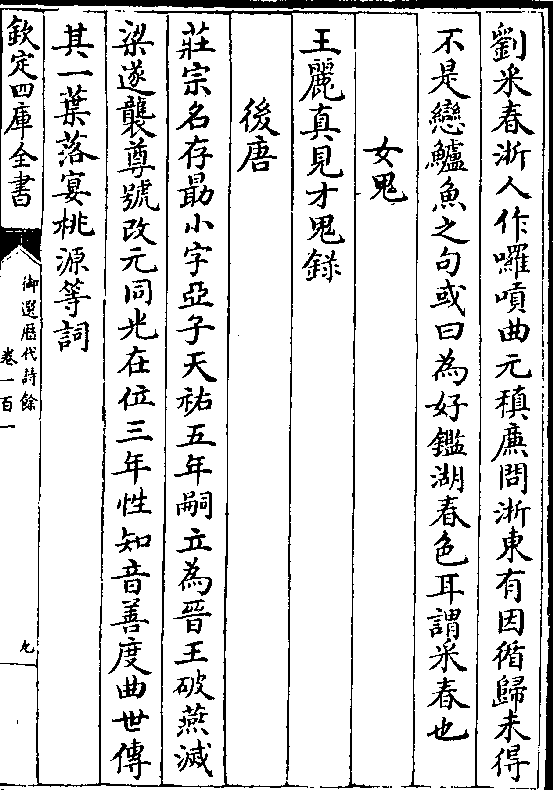 劉采春浙人作囉嗊曲元稹廉問浙東有因循歸未得
不是戀鱸魚之句或曰為好鑑湖春色耳謂采春也
女鬼
王麗真見才鬼錄
後唐
莊宗名存勗小字亞子天祐五年嗣立為晉王破燕滅
梁遂襲尊號改元同光在位三年性知音善度曲世傳
其一葉落宴桃源等詞
欽定四庫全書
御選歷代詩餘
卷一百一
九